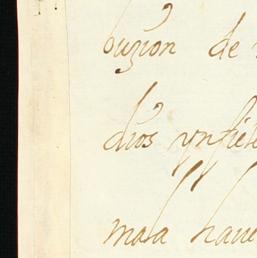 buzion de
dios ynfiele
mala haue